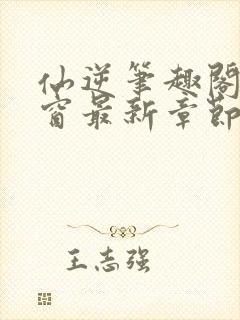 仙逆笔趣阁
窗最新章节
王志强